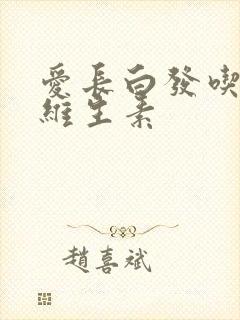 愛長白發喫
維生素
趙喜斌